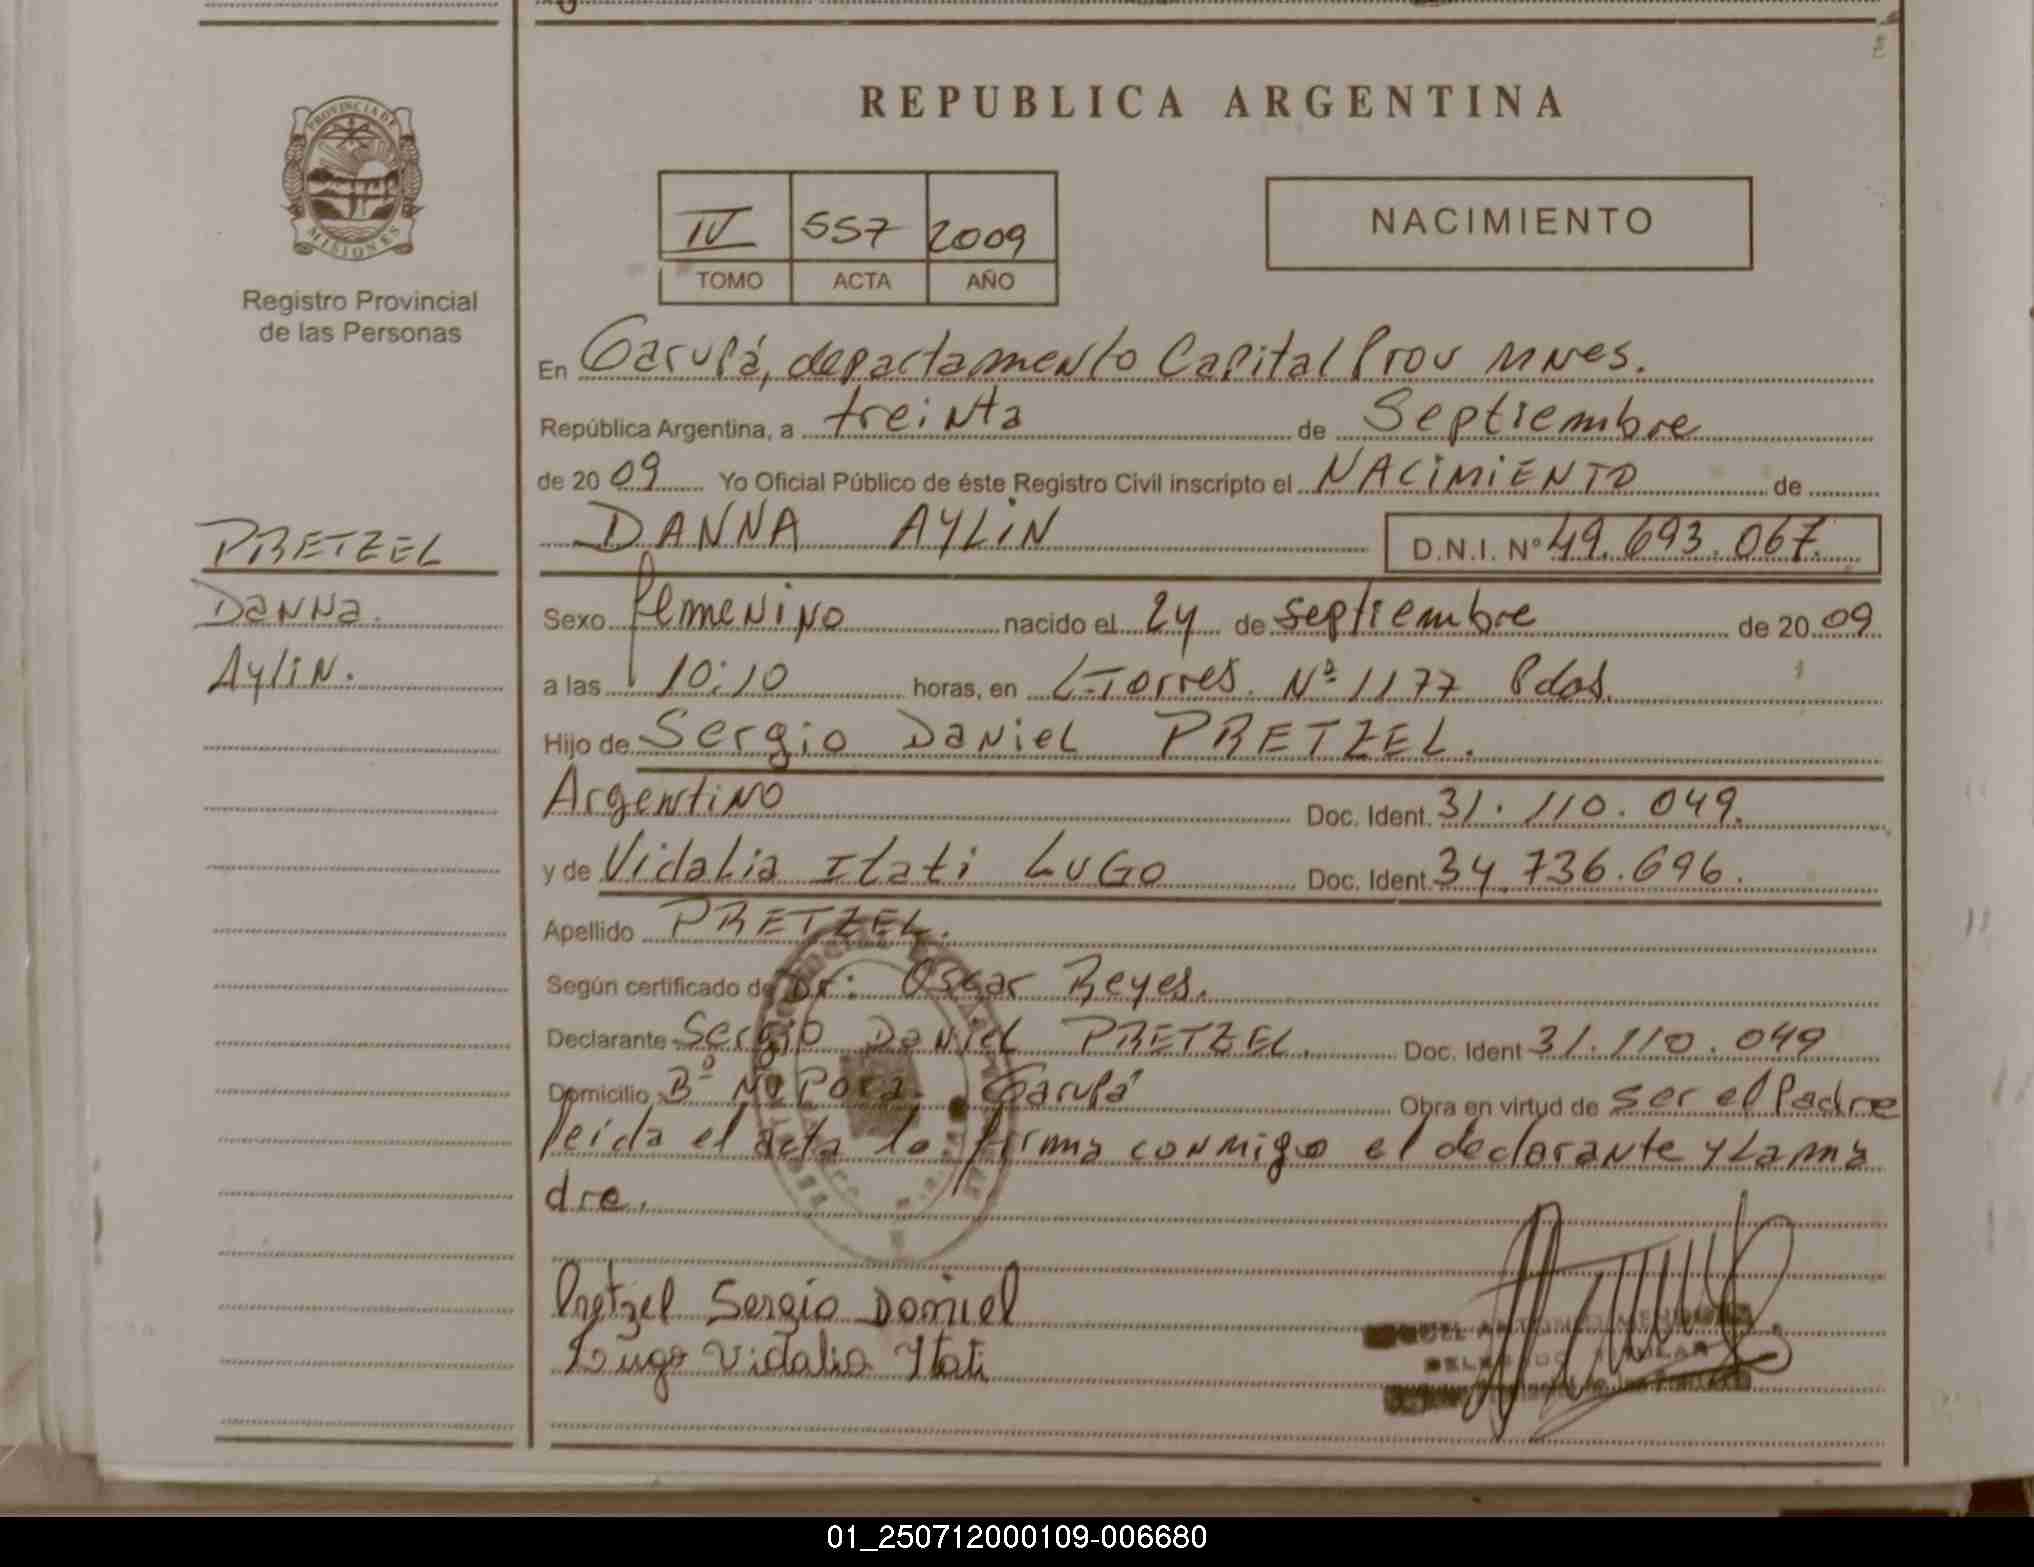 REPUBLICA ARGENTINA
PROVINCIA DE
MISIONES
Registro Provincial
de las Personas
IV 557 2009
TOMO ACTA AÑO
NACIMIENTO
En Garupá, departamento Capital Prov Mnes.
República Argentina, a treinta de Septiembre
de 2009 Yo Oficial Público de éste Registro Civil inscripto el NACIMIENTO de
PRETZEL
Danna.
Aylin.
DANNA AYLIN D.N.I. Nº 49.693.067.
Sexo femenino nacido el 24 de septiembre de 2009
a las 10:10 horas, en L. Torres. Nº 1177 Pdas.
Hijo de Sergio Daniel PRETZEL.
Argentino Doc. Ident. 31.110.049.
y de Vidalia Itati LUGO Doc. Ident. 34.736.696.
Apellido PRETZEL.
Según certificado de Dr: Oscar Reyes.
Declarante Sergio Daniel PRETZEL. Doc. Ident 31.110.049
Domicilio Bº Ñu Pora. Garupá Obra en virtud de ser el Padre
leída el acta la firma conmigo el declarante y la ma
dre.
Pretzel Sergio Daniel
Lugo Vidalia Itati
01_250712000109-006680